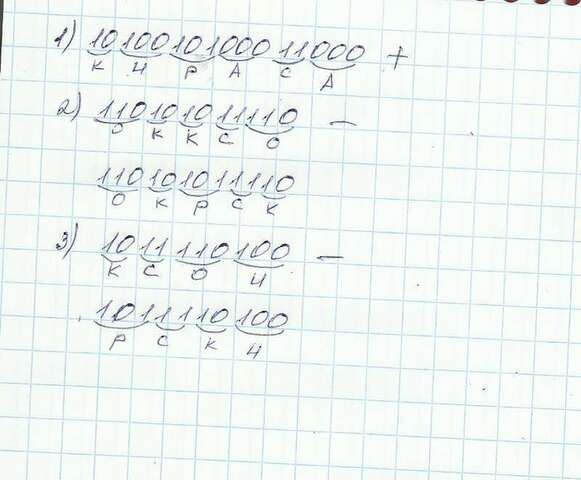 1) 10100101000 11000 +
К Ч Р А С А
2) 110101011110 -
О К К С О
110101011110
О К Р С К
3) 1011110100 -
К С О Ч
1011110100
Р С К Ч